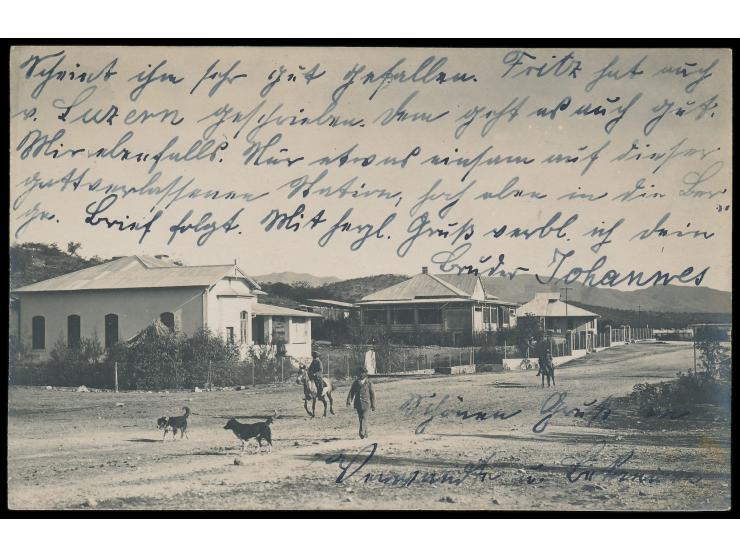 Scheint ihm sehr gut gefallen. Fritz hat auch
v. Luzern geschrieben. Dem geht es auch gut.
Mir ebenfalls. Nur etwas einsam auf dieser
gottverlassenen Station, hoch oben in die Ber-
ge. Brief folgt. Mit herzl. Gruß verbl. ich dein
Bruder Johannes
Schönen Gruß an
Verwandte u. Bekannte